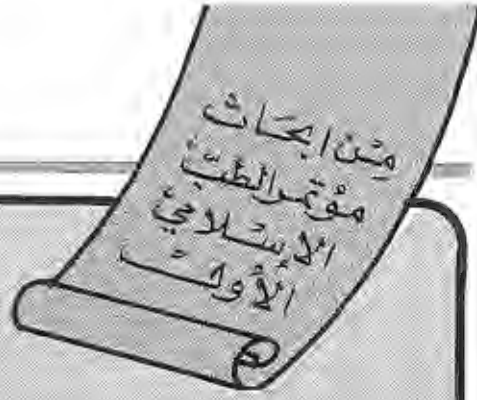 مِنْ ابحَاث
مؤتمر الطبّ
الإسْلامِيْ
الأوّلت